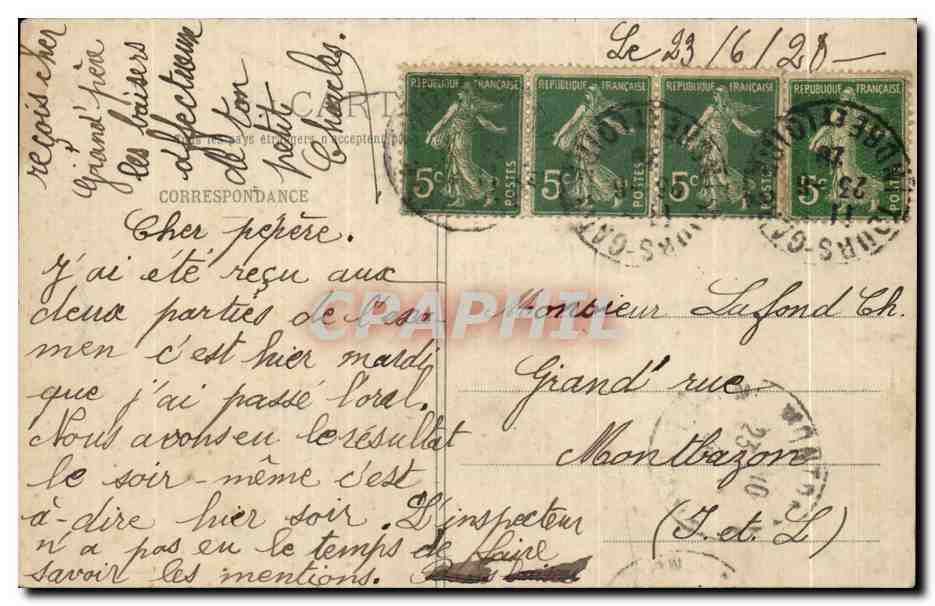 Le 23/6/20 —
CARTE
Tous les pays étrangers n'acceptent pas
CORRESPONDANCE
REPUBLIQUE FRANÇAISE
5c
POSTES
REPUBLIQUE FRANÇAISE
5c
POSTES
REPUBLIQUE FRANÇAISE
5c
POSTES
REPUBLIQUE FRANÇAISE
5c
POSTES
Cher pépère.
J'ai été reçu aux
deux parties de l'exa
men c'est hier mardi
que j'ai passé l'oral.
Nous avons eu le résultat
le soir-même c'est
à-dire hier soir. L'inspecteur
n'a pas eu le temps de faire
savoir les mentions.
reçois cher
Grand'père
les baisers
affectueux
de ton
petit
Charles.
Monsieur Lafond Ch.
Grand' rue
Montbazon
(I. et. L)
CPAPHIL